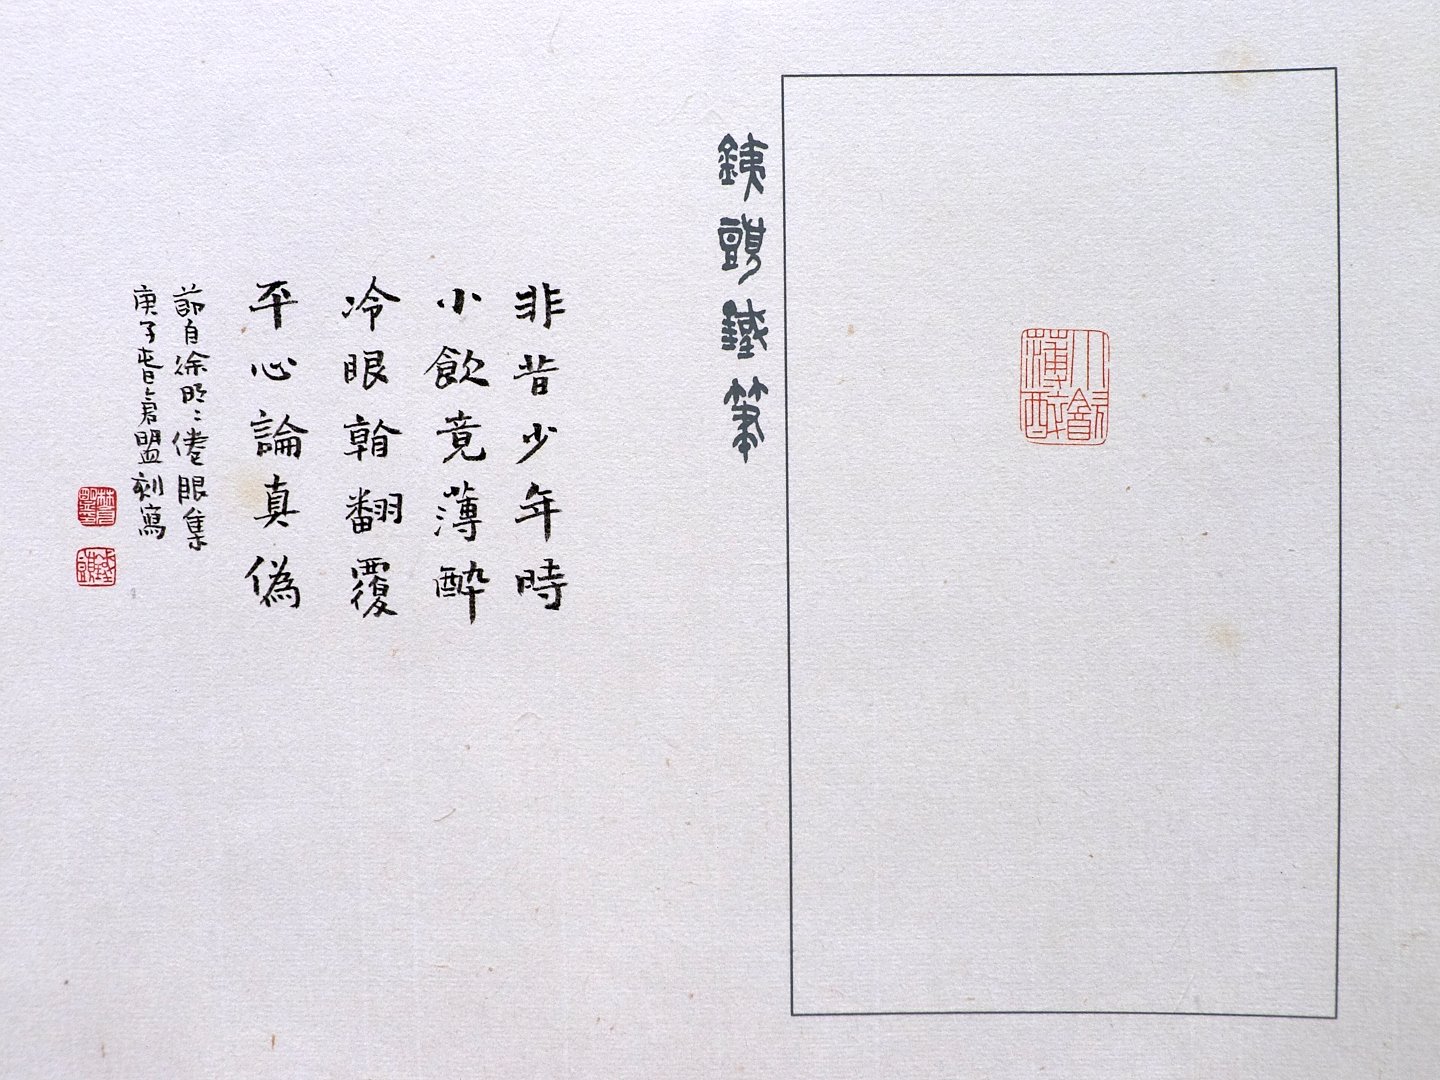 小飲薄醉
銕頭鐵筆
非昔少年時
小飲竟薄醉
冷眼看翻覆
平心論真偽
節自徐明〻倦眼集
庚子旾盟刻寫